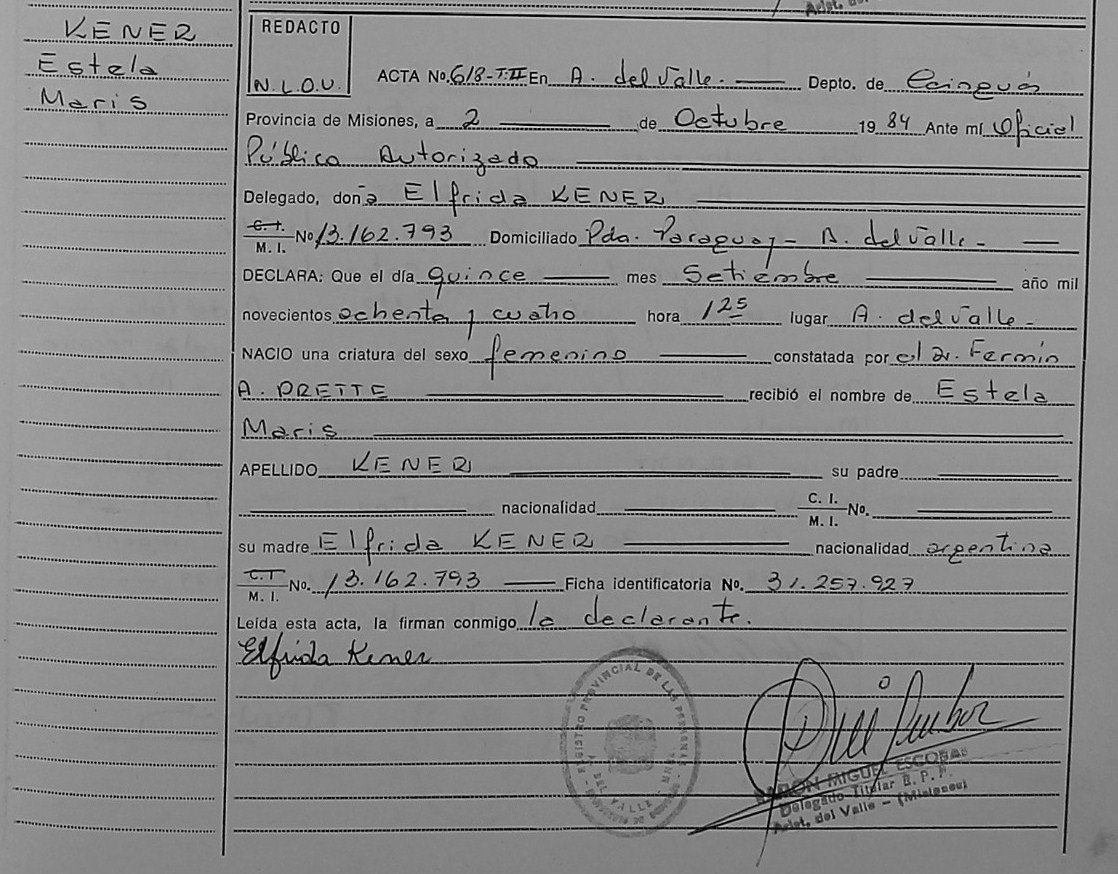 KENER
Estela
Maris
REDACTO
N.L.O.U.
ACTA No. 618-T:II En A. del Valle. Depto. de Cainguás
Provincia de Misiones, a 2 de Octubre 1984 Ante mí Oficial
Público Autorizado
Delegado, doña Elfrida KENER
C. I. / M. I. No 13.162.793 Domiciliado Pda. Paraguay - A. del Valle -
DECLARA: Que el día quince mes Setiembre año mil
novecientos ochenta y cuatro hora 1 25 lugar A. del Valle -
NACIO una criatura del sexo femenino constatada por el Dr. Fermín
A. PRETTE recibió el nombre de Estela
Maris
APELLIDO KENER su padre
nacionalidad C. I. / M. I. No.
su madre Elfrida KENER nacionalidad argentina
C. I. / M. I. No. 13.162.793 Ficha identificatoria No. 31.257.927
Leída esta acta, la firman conmigo la declarante.
Elfrida Kener
REGISTRO PROVINCIAL DE LAS PERSONAS
DEL VALLE
MIGUEL ESCOBAR
Delegado Titular R. P. P.
Arist. del Valle - (Misiones)